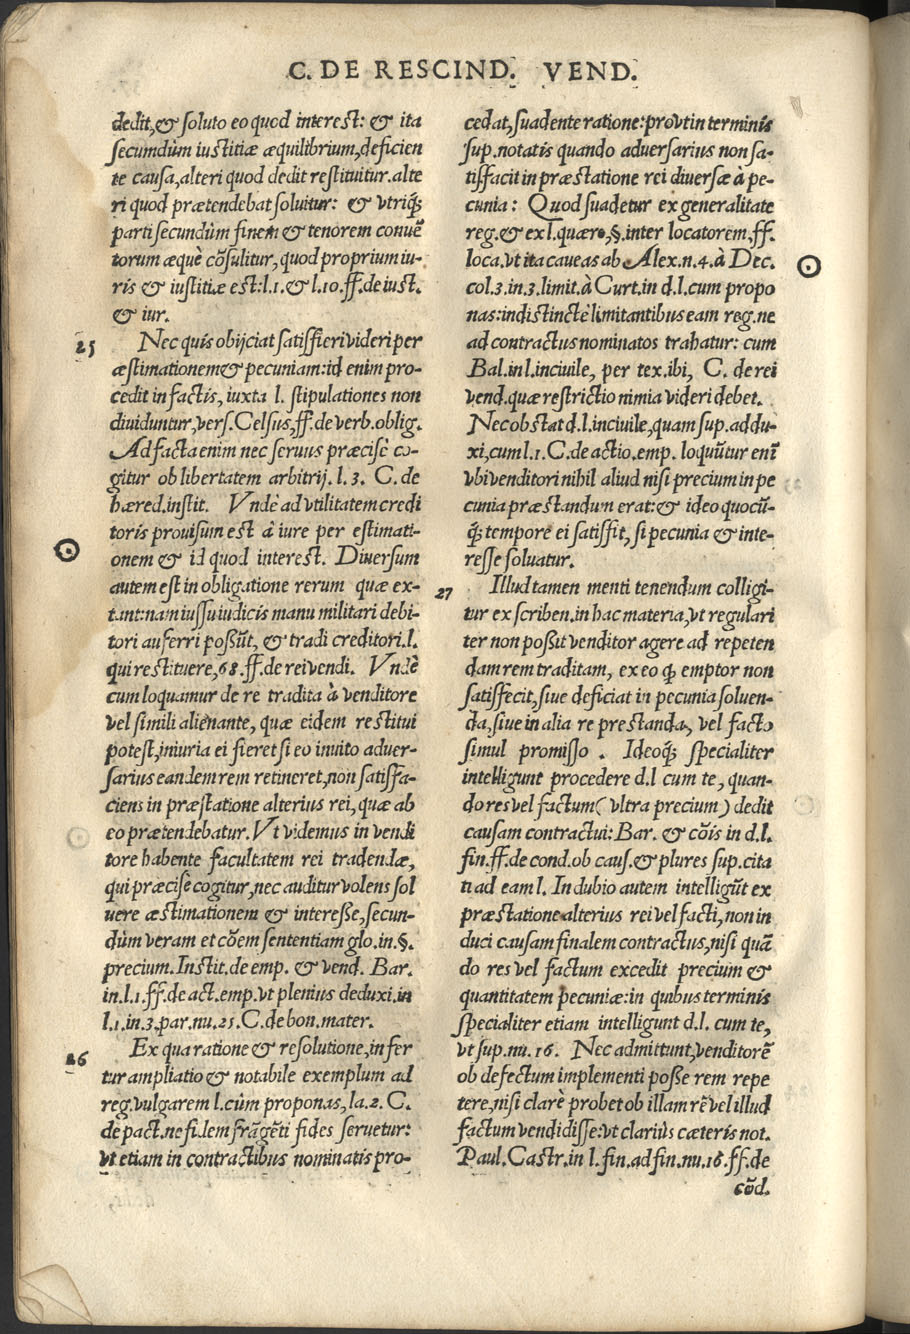 C. DE RESCIND. VEND.
dedit, & soluto eo quod interest: & ita
secundùm iustitiæ æquilibrium, deficien
te causa, alteri quod dedit restituitur. alte
ri quod prætendebat soluitur: & vtriq́;
parti secundùm finem & tenorem conuē
torum æquè cōsulitur, quod proprium iu-
ris & iustitiæ est: l.1. & l.10. ff. de iust.
& iur.
25
Nec quis obijciat satisfieri videri per
æstimationem & pecuniam: id enim pro-
cedit in factis, iuxta l. stipulationes non
diuiduntur, vers. Celsus, ff. de verb. oblig.
Ad facta enim nec seruus præcisè co-
gitur ob libertatem arbitrij. l. 3. C. de
hæred. instit. Vndè ad vtilitatem credi
toris prouisum est à iure per estimati-
onem & id quod interest. Diuersum
autem est in obligatione rerum quæ ex-
tant: nam iussu iudicis manu militari debi-
tori auferri possūt, & tradi creditori. l.
qui restituere, 68. ff. de rei vendi. Vndè
cum loquamur de re tradita à venditore
vel simili alienante, quæ eidem restitui
potest, iniuria ei fieret si eo inuito aduer-
sarius eandem rem retineret, non satisfa-
ciens in præstatione alterius rei, quæ ab
eo prætendebatur. Vt videmus in vendi
tore habente facultatem rei tradendæ,
qui præcisè cogitur, nec auditur volens sol
uere æstimationem & interesse, secun-
dùm veram et cōem sententiam glo. in. §.
precium. Instit. de emp. & vend. Bar.
in. l. 1. ff. de act. emp. vt plenius deduxi. in
l. 1. in 3. par. nu. 25. C. de bon. mater.
26
Ex qua ratione & resolutione, infer
tur ampliatio & notabile exemplum ad
reg. vulgarem l. cùm proponas, la. 2. C.
de pact. ne fidem frāgēti fides seruetur:
vt etiam in contractibus nominatis pro-
cedat, suadente ratione: prout in terminis
sup. notatis quando aduersarius non sa-
tisfacit in præstatione rei diuersæ à pe-
cunia: Quod suadetur ex generalitate
reg. & ex l. quæro, §. inter locatorem. ff.
loca. vt ita caueas ab Alex. n. 4. à Dec.
col. 3. in 3. limit. à Curt. in d. l. cum propo
nas: indistinctè limitantibus eam reg. ne
ad contractus nominatos trahatur: cum
Bal. in l. inciuile, per tex. ibi, C. de rei
vend. quæ restrictio nimia videri debet.
Nec obstat d. l. inciuile, quam sup. addu-
xi, cum l. 1. C. de actio. emp. loquūtur enī
vbi venditori nihil aliud nisi precium in pe
cunia præstandum erat: & ideo quocū-
q́; tempore ei satisfit, si pecunia & inte-
resse soluatur.
27
Illud tamen menti tenendum colligi-
tur ex scriben. in hac materia, vt regulari
ter non possit venditor agere ad repeten
dam rem traditam, ex eo q́; emptor non
satisfecit, siue deficiat in pecunia soluen-
da, siue in alia re prestanda, vel facto
simul promisso . Ideoq́; specialiter
intelligunt procedere d. l cum te, quan-
do res vel factum (vltra precium) dedit
causam contractui: Bar. & cōis in d. l.
fin. ff. de cond. ob caus. & plures sup. cita
ti ad eam l. In dubio autem intelligūt ex
præstatione alterius rei vel facti, non in
duci causam finalem contractus, nisi quā
do res vel factum excedit precium &
quantitatem pecuniæ: in quibus terminis
specialiter etiam intelligunt d. l. cum te,
vt sup. nu. 16. Nec admittunt, venditorē
ob defectum implementi posse rem repe
tere, nisi clarè probet ob illam rē vel illud
factum vendidisse: vt clariùs cæteris not.
Paul. Castr. in l. fin. ad fin. nu. 16. ff. de
cōd.